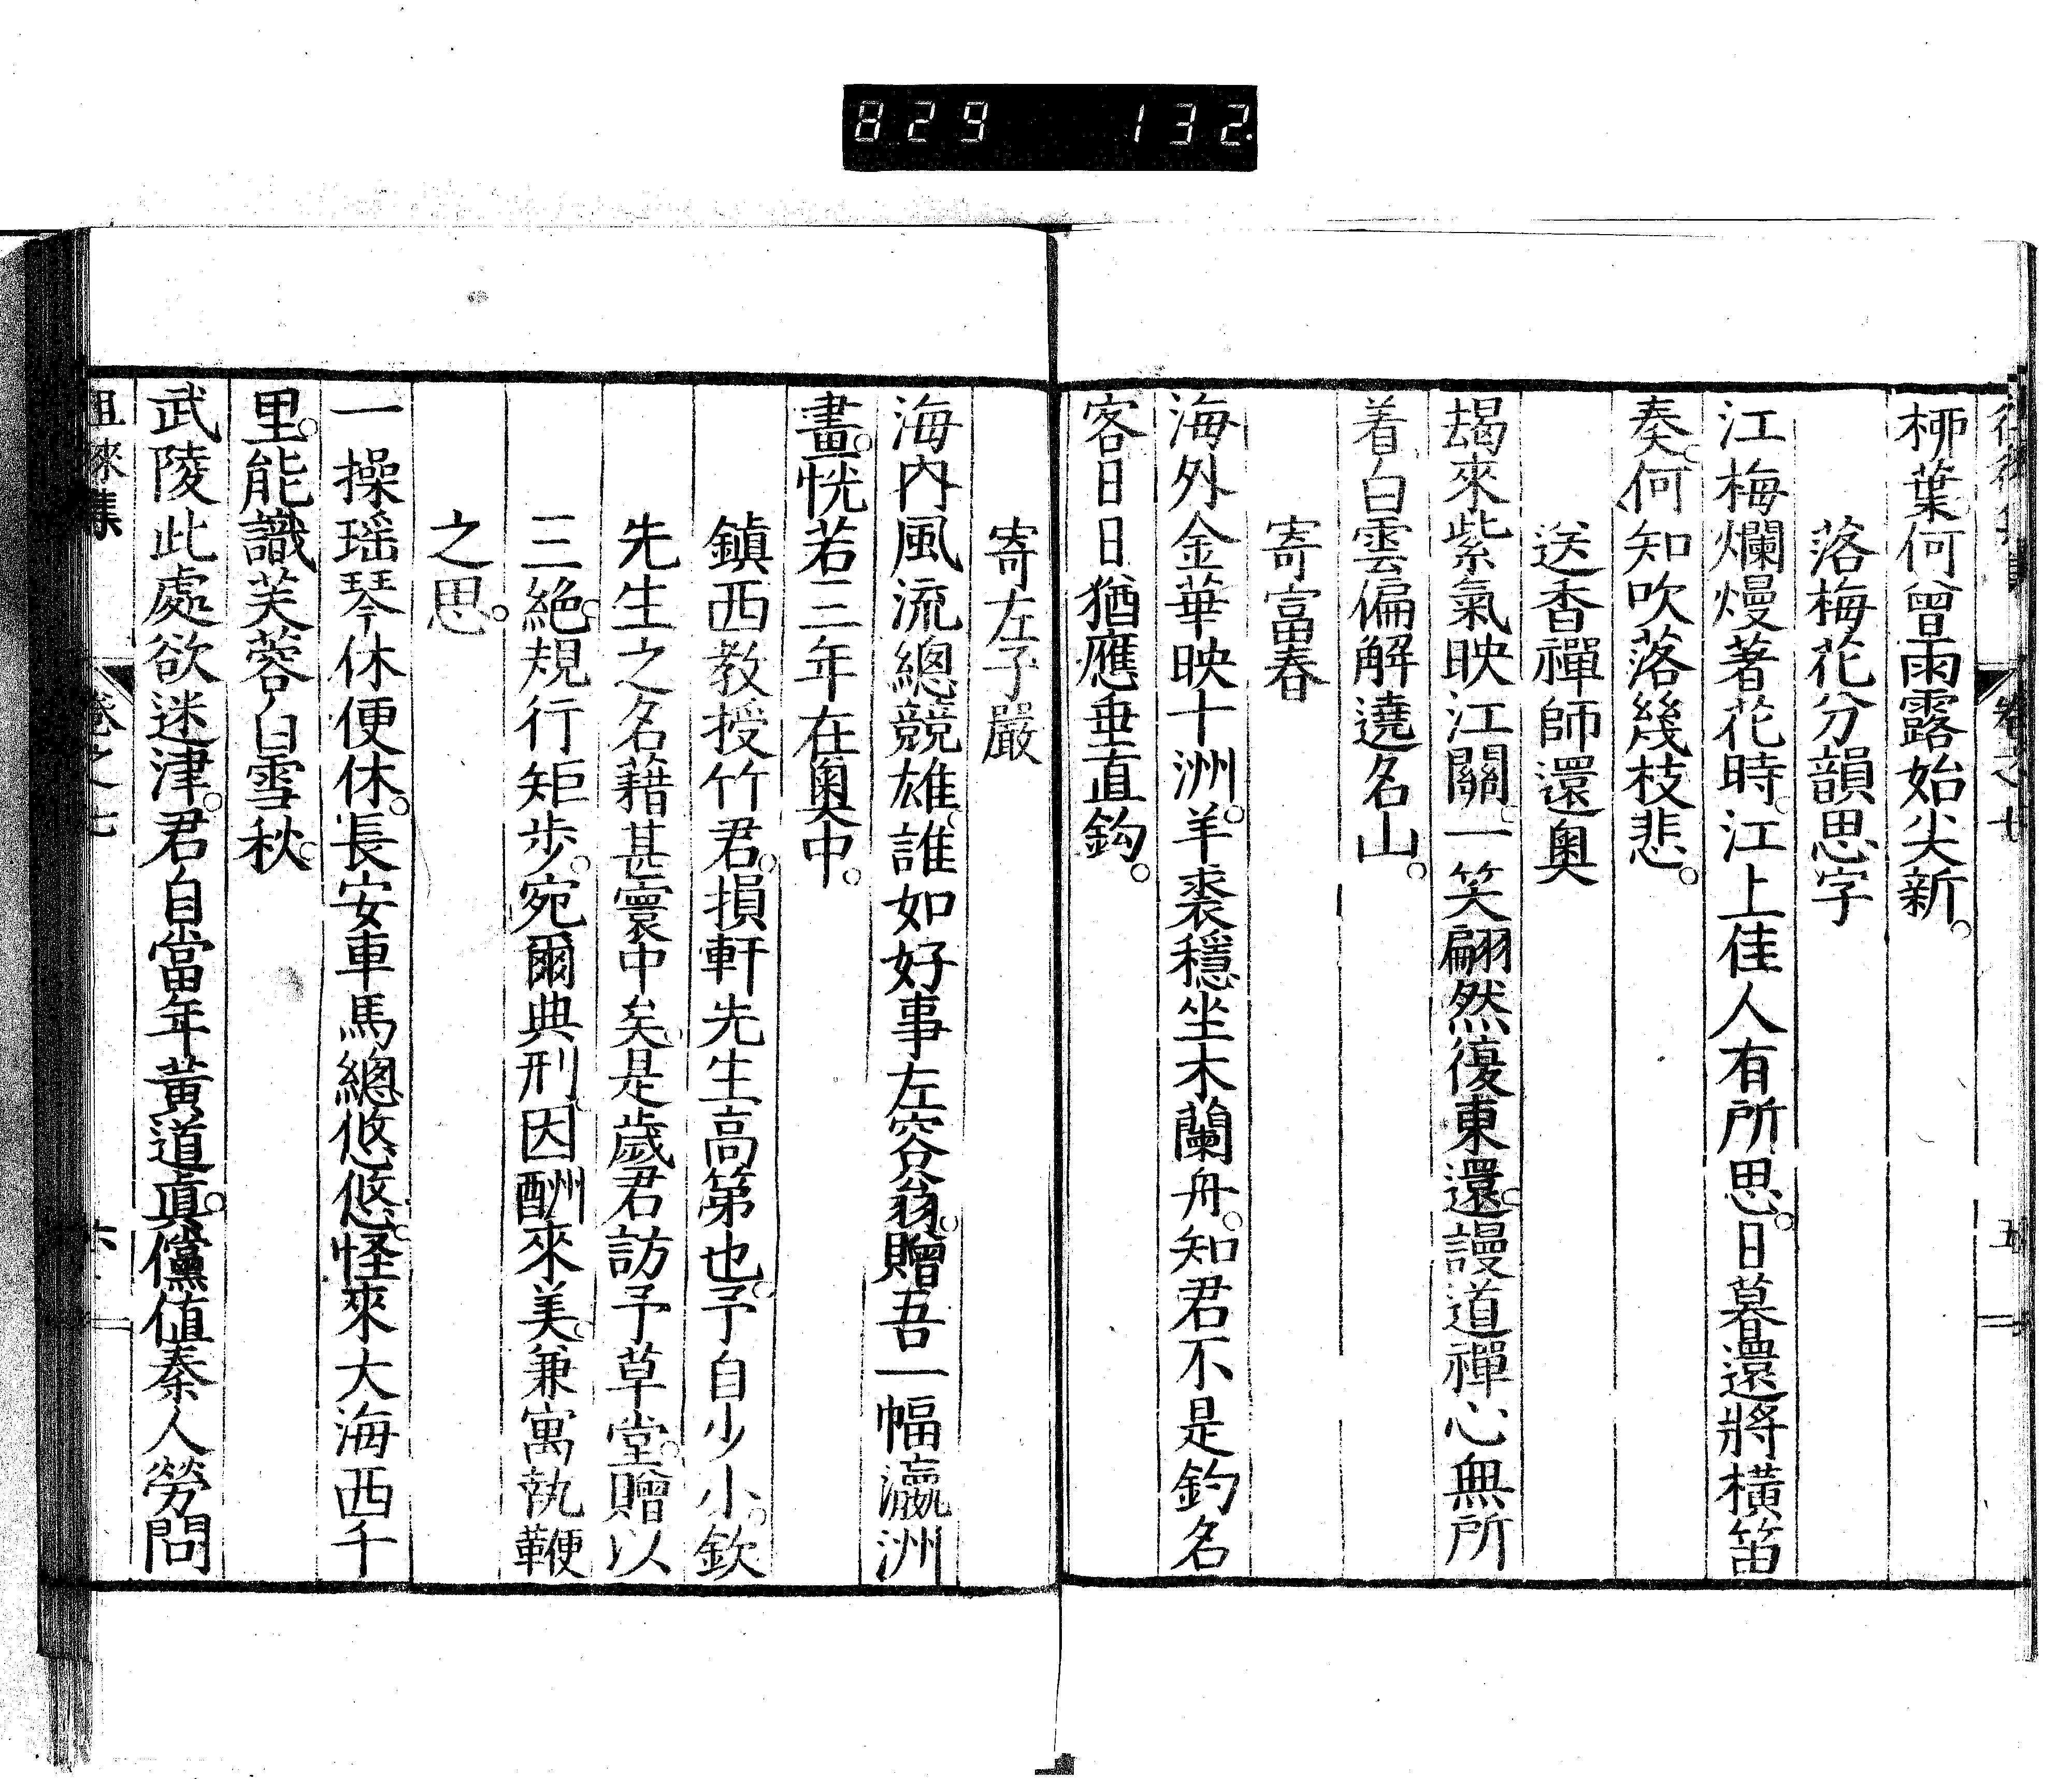 829 132.
柳葉何曾雨露始尖新。
落梅花分韻思字
江梅爛熳著花時。江上佳人有所思。日暮還將橫笛
奏。何知吹落幾枝悲。
送香禪師還奧
朅來紫氣映江關。一笑翩然復東還。謾道禪心無所
着。白雲偏解遶名山。
寄富春
海外金華映十洲。羊裘穩坐木蘭舟。知君不是釣名
客。日日猶應垂直鈎。
寄左子嚴
海內風流總競雄。誰如好事左容翁。贈吾一幅瀛洲
畫。恍若三年在奧中。
鎮西教授竹君。損軒先生高第也。予自少小。欽
先生之名藉甚寰中矣。是歲君訪予草堂。贈以
三絕。規行矩步。宛爾典刑。因酬來美。兼寓執鞭
之思。
一操瑤琴休便休。長安車馬總悠悠。怪來大海西千
里。能識芙蓉白雪秋。
武陵此處欲迷津。君自當年黃道真。儻値秦人勞問
徂徠集 卷之七 六